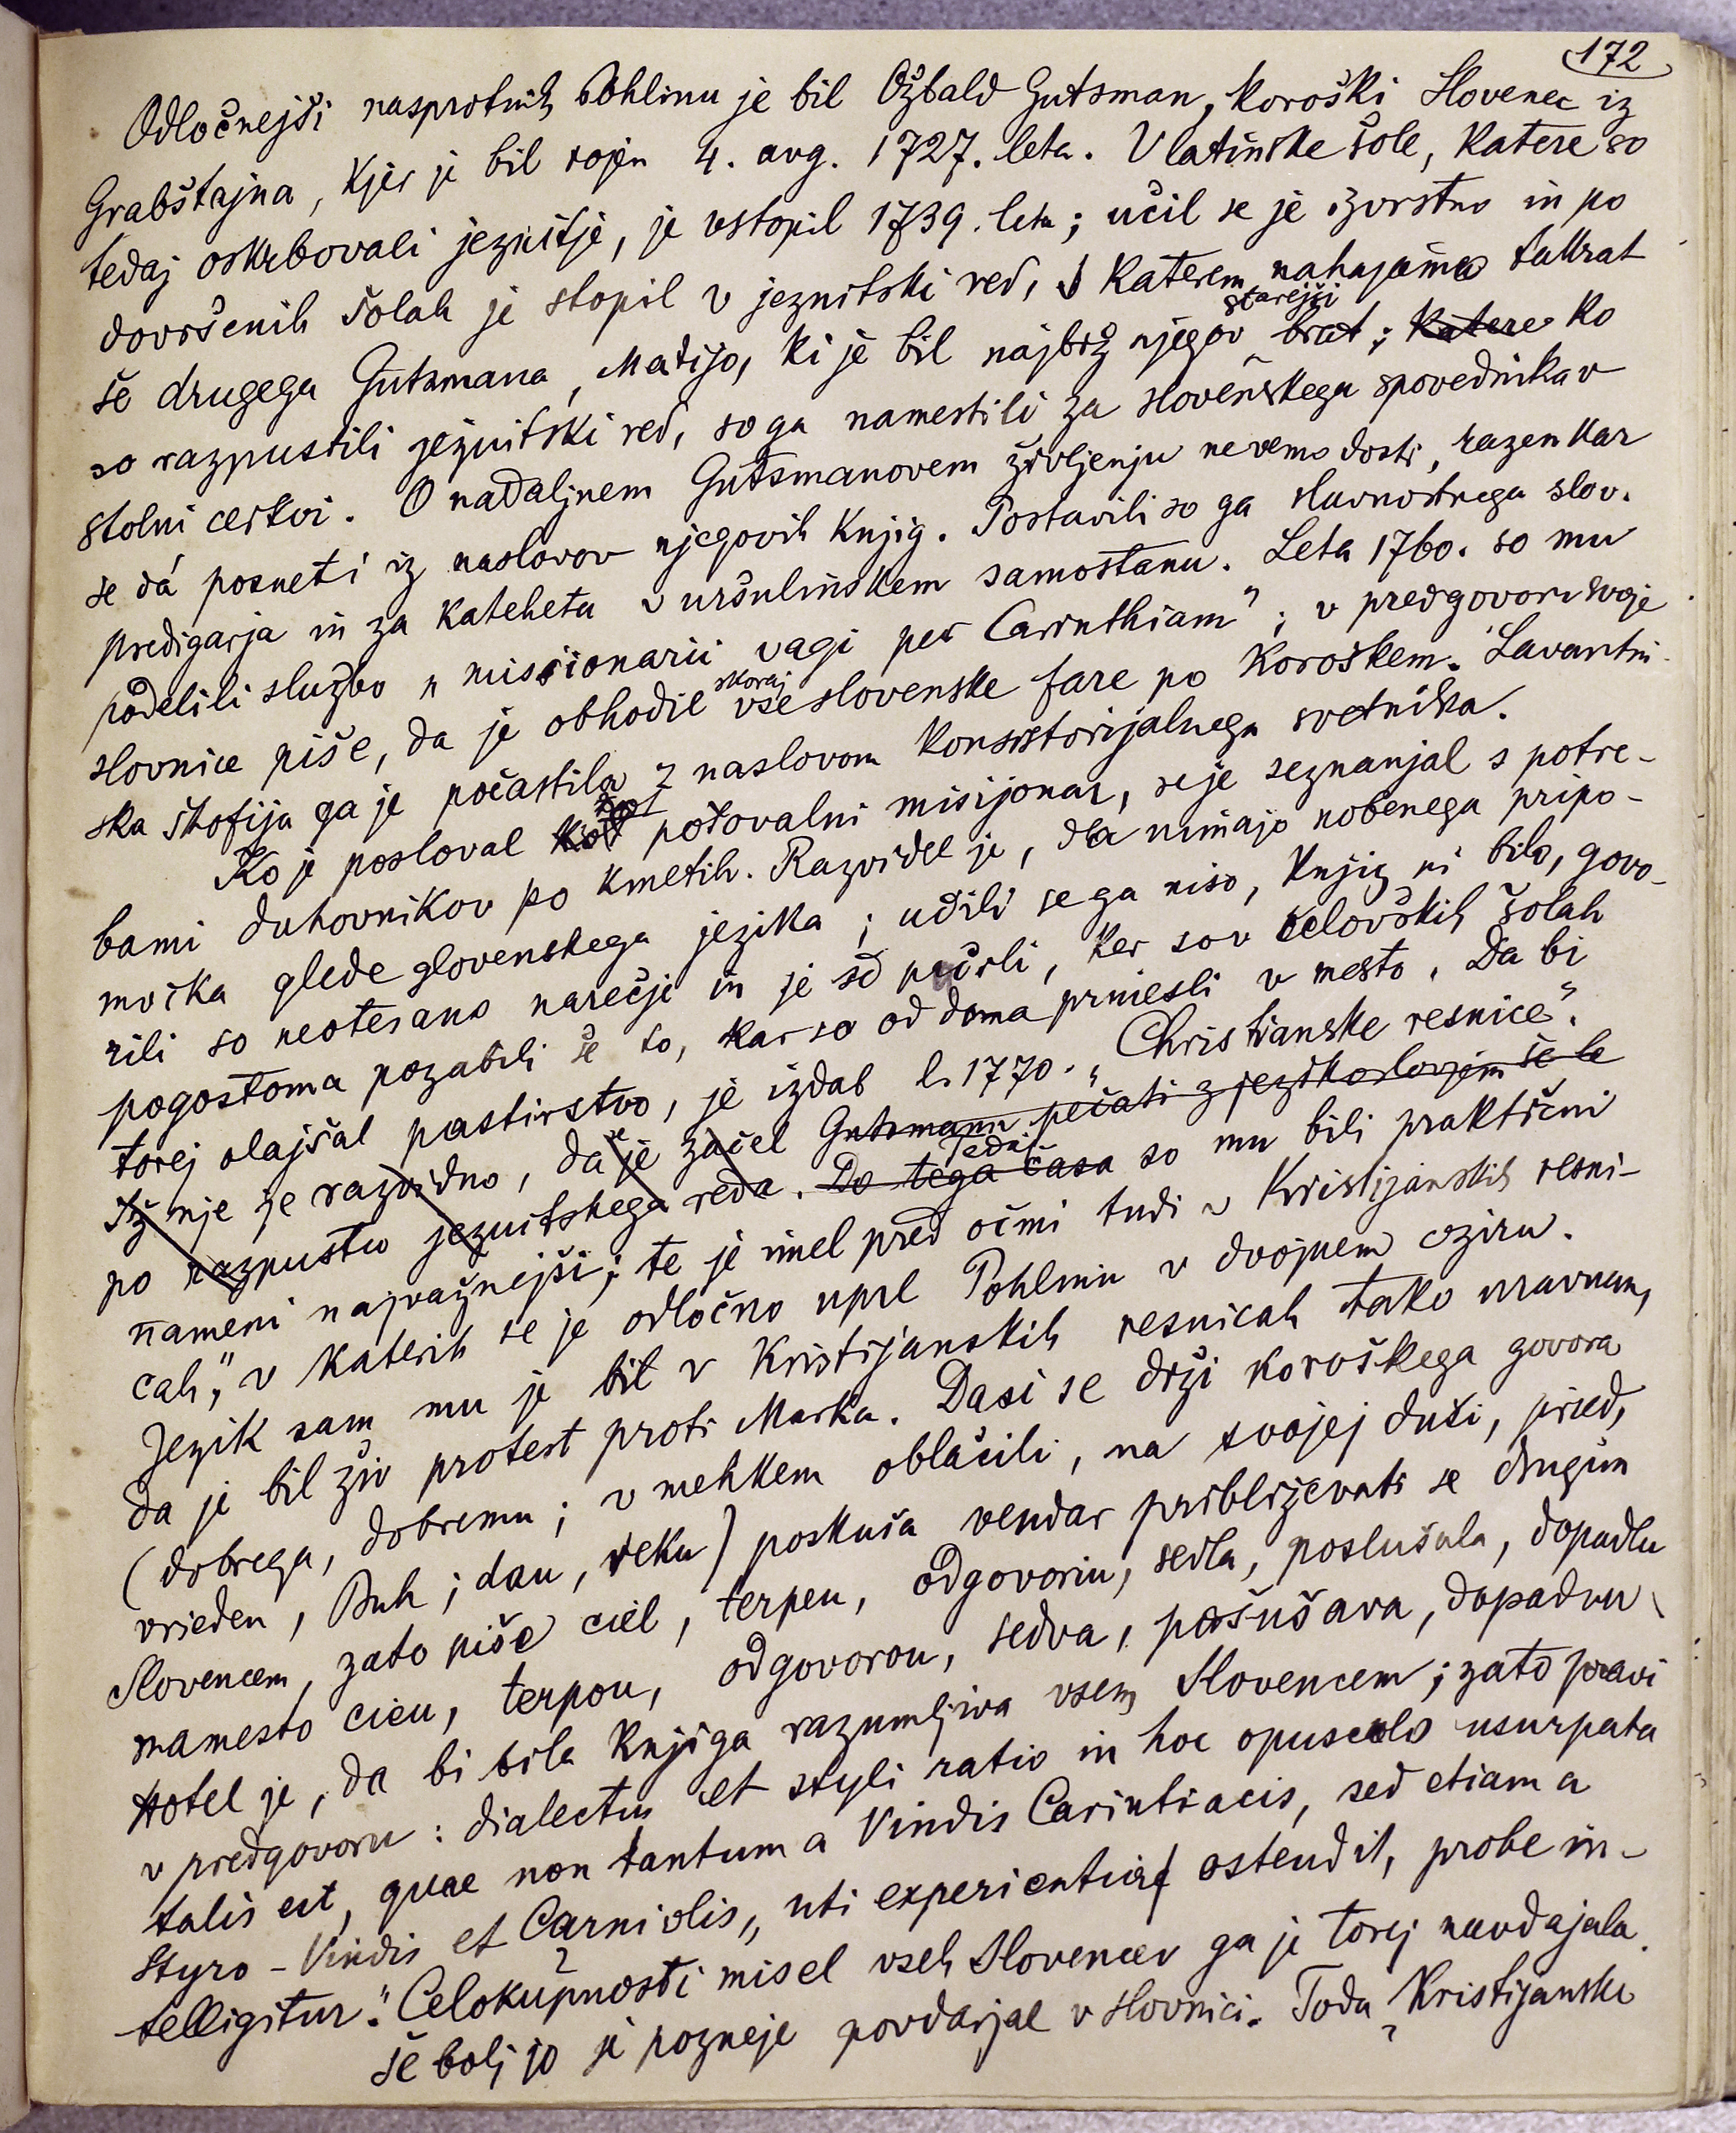 172
Odločnejši nasprotnik Pohlinu je bil Ožbald Gutsman, koroški Slovenec iz
Grabštajna, kjer je bil rojen 4. avg. 1727. leta. V latinske šole, katere so
tedaj oskrbovali jezuitje, je vstopil 1739. leta; učil se je izvrstno in po
dovršenih šolah je stopil v jezuitski red, v katerem nahajamo takrat
še drugega Gutsmana, Matijo, ki je bil najbrž njegov starejši brat; katere ko
so razpustili jezuitski red, so ga namestili za slovenskega spovednika v
stolni cerkvi. O nadaljnem Gutsmanovem življenju ne vemo dosti, razen kar
se dá posneti iz naslovov njegovih knjig. Postavili so ga slavnostnega slov.
predigarja in za kateheta v uršulinskem samostanu. Leta 1760. so mu
podelili službo „missionarii vagi per Carinthiam“; v predgovoru svoje
slovnice piše, da je obhodil skoraj vse slovenske fare po Koroškem. Lavantin-
ska škofija ga je počastila z naslovom konsistorijalnega svetnika.
Ko je posloval kot potovalni misijonar, se je seznanjal s potre-
bami duhovnikov po kmetih. Razvidel je, da nimajo nobenega pripo-
močka glede slovenskega jezika; učili se ga niso, knjig ni bilo, govo-
rili so neotesano narečje in je še pačili, ker so v celovških šolah
pogostoma pozabili še to, kar so od doma prinesli v mesto. Da bi
torej olajšal pastirstvo, je izdal l. 1770. „Christianske resnice“.
Iz nje je razvidno, da se je začel Gutsmann pečati z jezikoslovjem še le
po razpustu jezuitskega reda. Do tega časa Tedaj so mu bili praktični
nameni najvažnejši; te je imel pred očmi tudi v Kristijanskih resni-
cah,“ v katerih se je odločno uprl Pohlinu v dvojnem oziru.
Jezik sam mu je bil v Kristijanskih resnicah tako uravnan,
da je bil živ protest proti Marku. Dasi se drži koroškega govora
(dobrega, dobremu; v mehkem oblačili, na svojej duši, pried,
vrieden, Buh; dau, reku) poskuša vendar približevati se drugim
Slovencem, zato piše ciel, terpeu, odgovoriu, sedla, poslušala, dopadlu
namesto cieu, terpou, odgovorou, sedva, pošušava, dopadvu
Hotel je, da bi bila knjiga razumljiva vsem Slovencem; zato pravi
v predgovoru: dialectus et styli ratio in hoc opusculo usurpata
talis est, quae non tantum a Vindis Carintiacis, sed etiam a
Styro-Vindis et Carniolis, uti experientia ostendit, probe in-
telligitur.“ Celokupnosti misel vseh Slovencev ga je torej navdajala.
še bolj jo je pozneje povdarjal v slovnici. Toda „Kristijanske